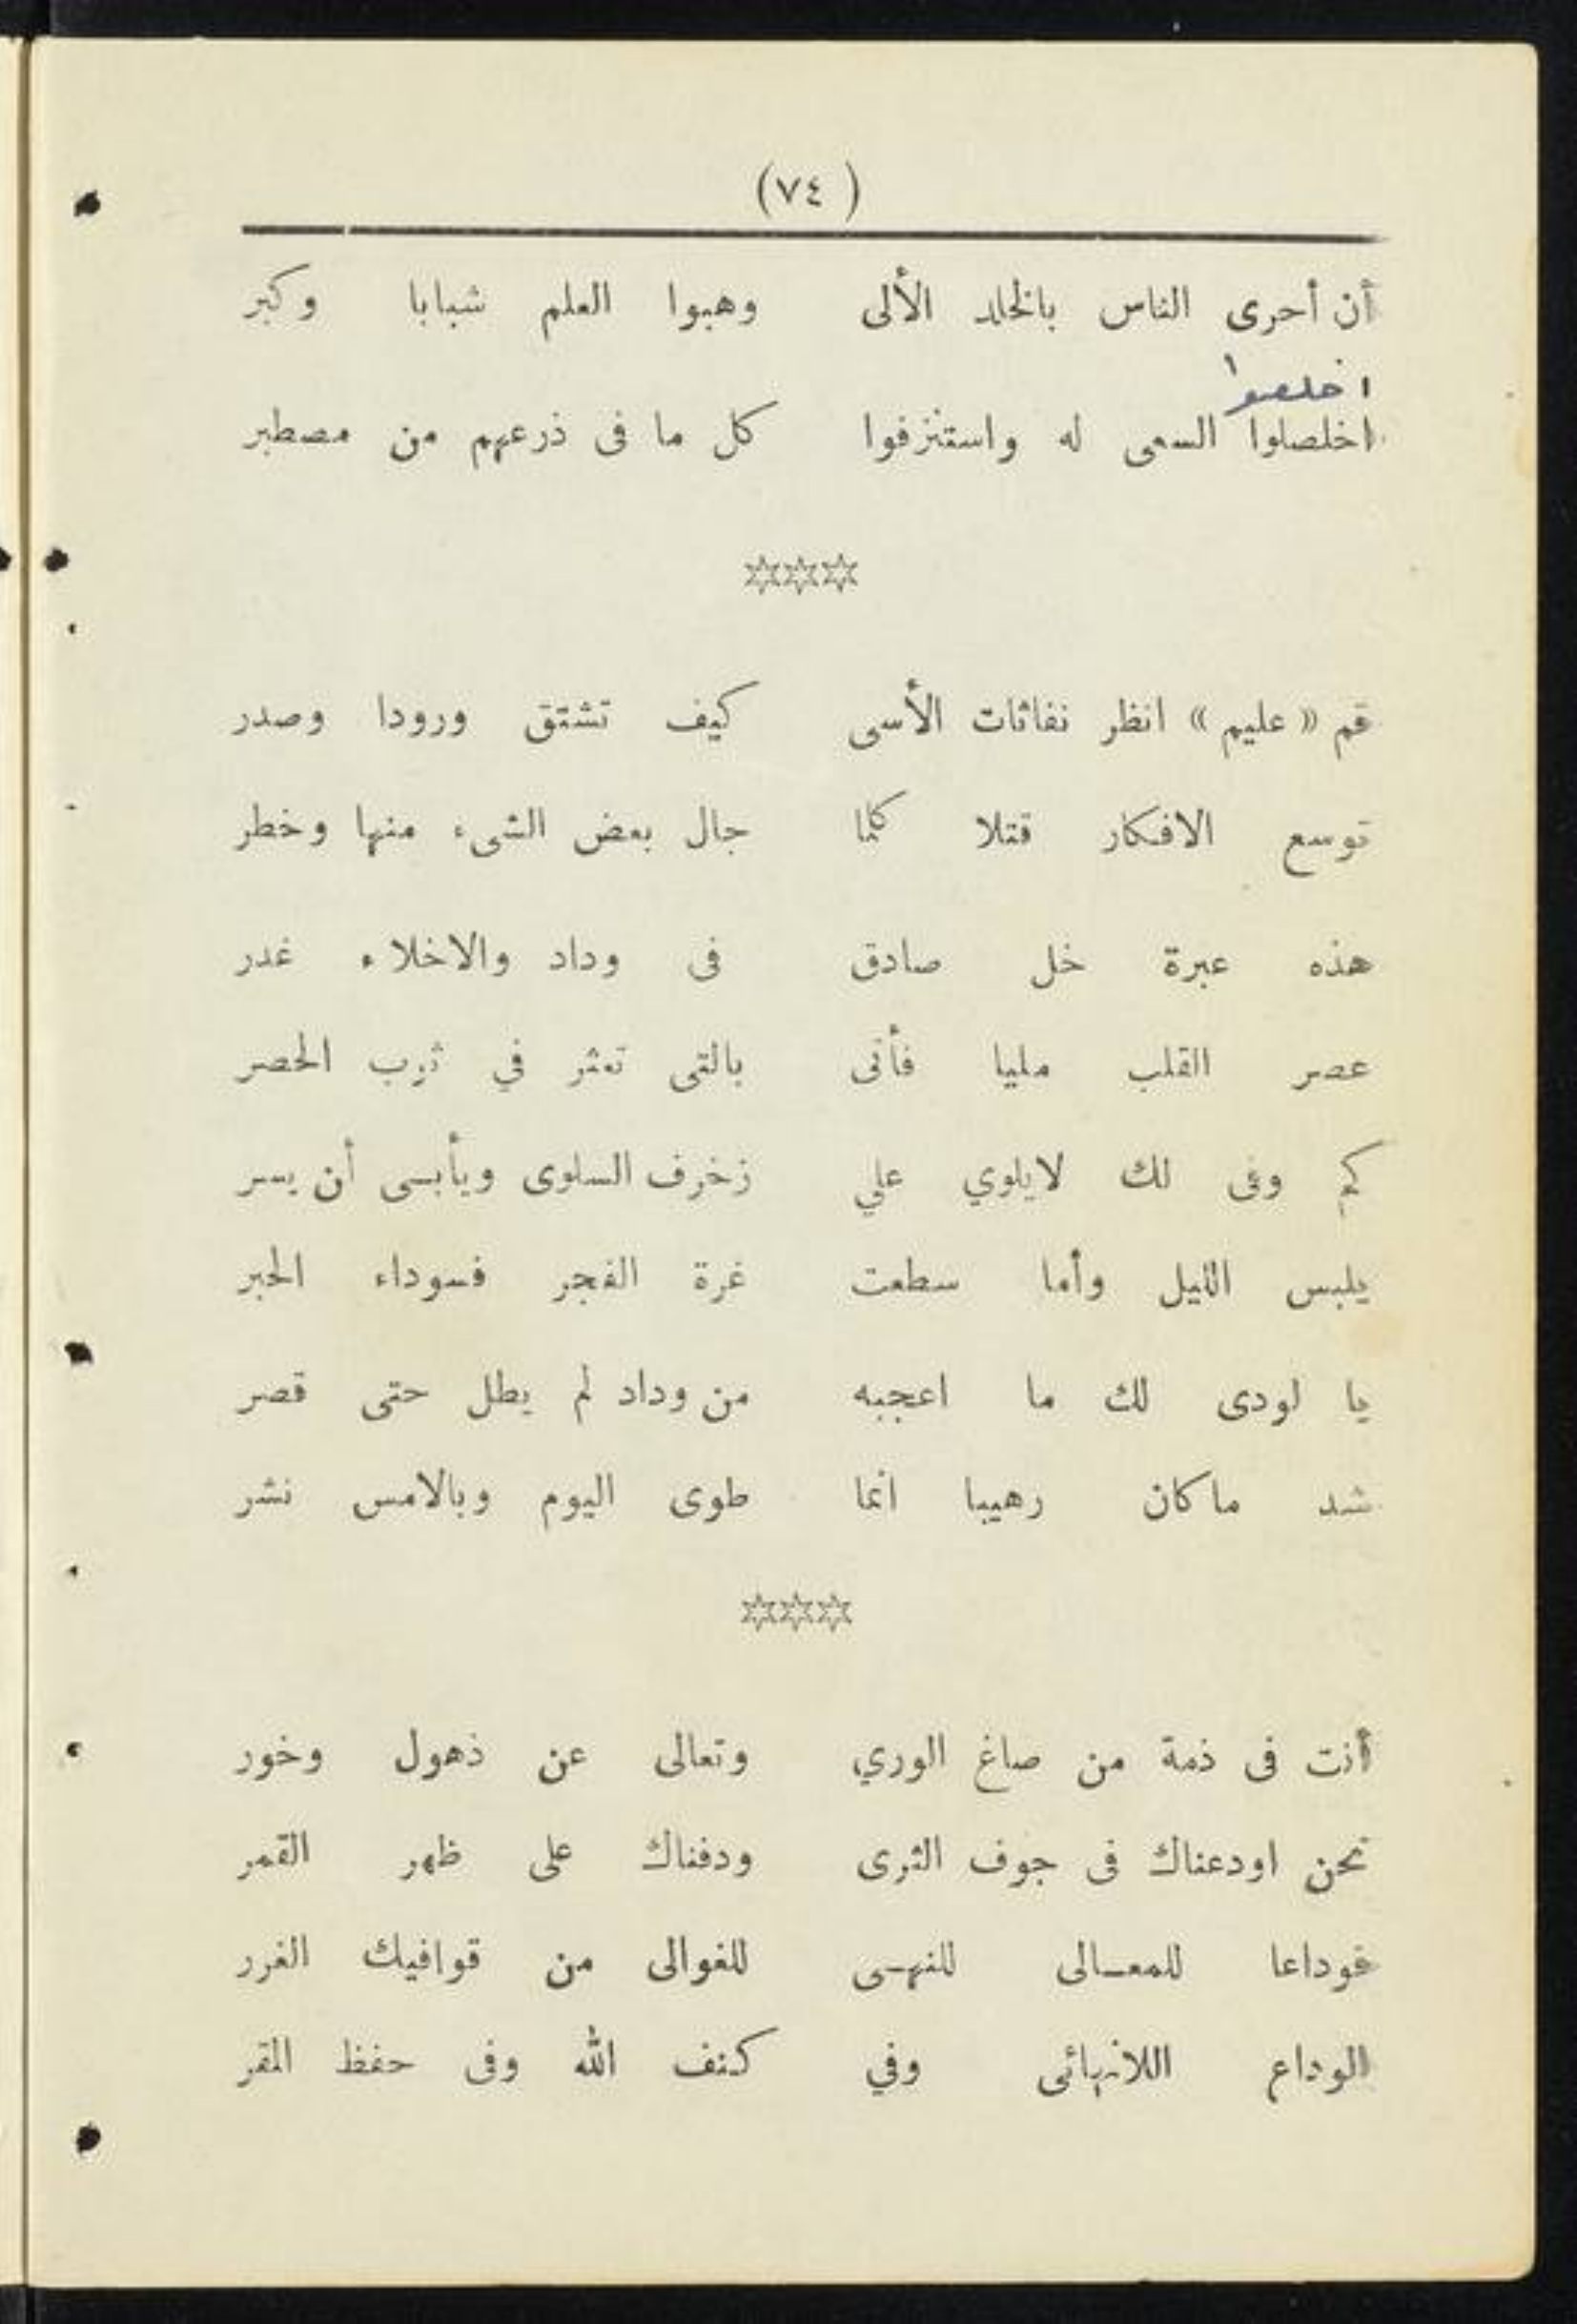 (٧٤ )
أن أحرى الناس بالخلد الألى وهبوا العلم شبابا وكبر
اخلصوا
اخلصاوا السعى له واستنزفوا كل ما فى ذرعهم من مصطبر
☆☆☆
قم « عليم » انظر نفاثات الأسى كيف تشتق ورودا وصدر
توسع الافكار قتلا كلما جال بعض الشىء منها وخطر
هذه عبرة خل صادق فى وداد والاخلاء غدر
عصر القلب مليا فأتى بالتى تعثر في ثوب الحصر
كم وفى لك لايلوي علي زخرف السلوى ويأبسى أن يسر
يلبس الليل وأما سطعت غرة الفجر فسوداء الحبر
يا لودى لك ما اعجبه من وداد لم يطل حتى قصر
شد ماكان رهيبا انما طوى اليوم وبالامس نشر
☆☆☆
أنت فى ذمة من صاغ الوري وتعالى عن ذهول وخور
نحن اودعناك فى جوف الثرى ودفناك على ظهر القمر
فوداعا للمعـالى للنهـى للغوالى من قوافيك الغرر
الوداع اللانهائى وفي كنف الله وفى حفظ المقر